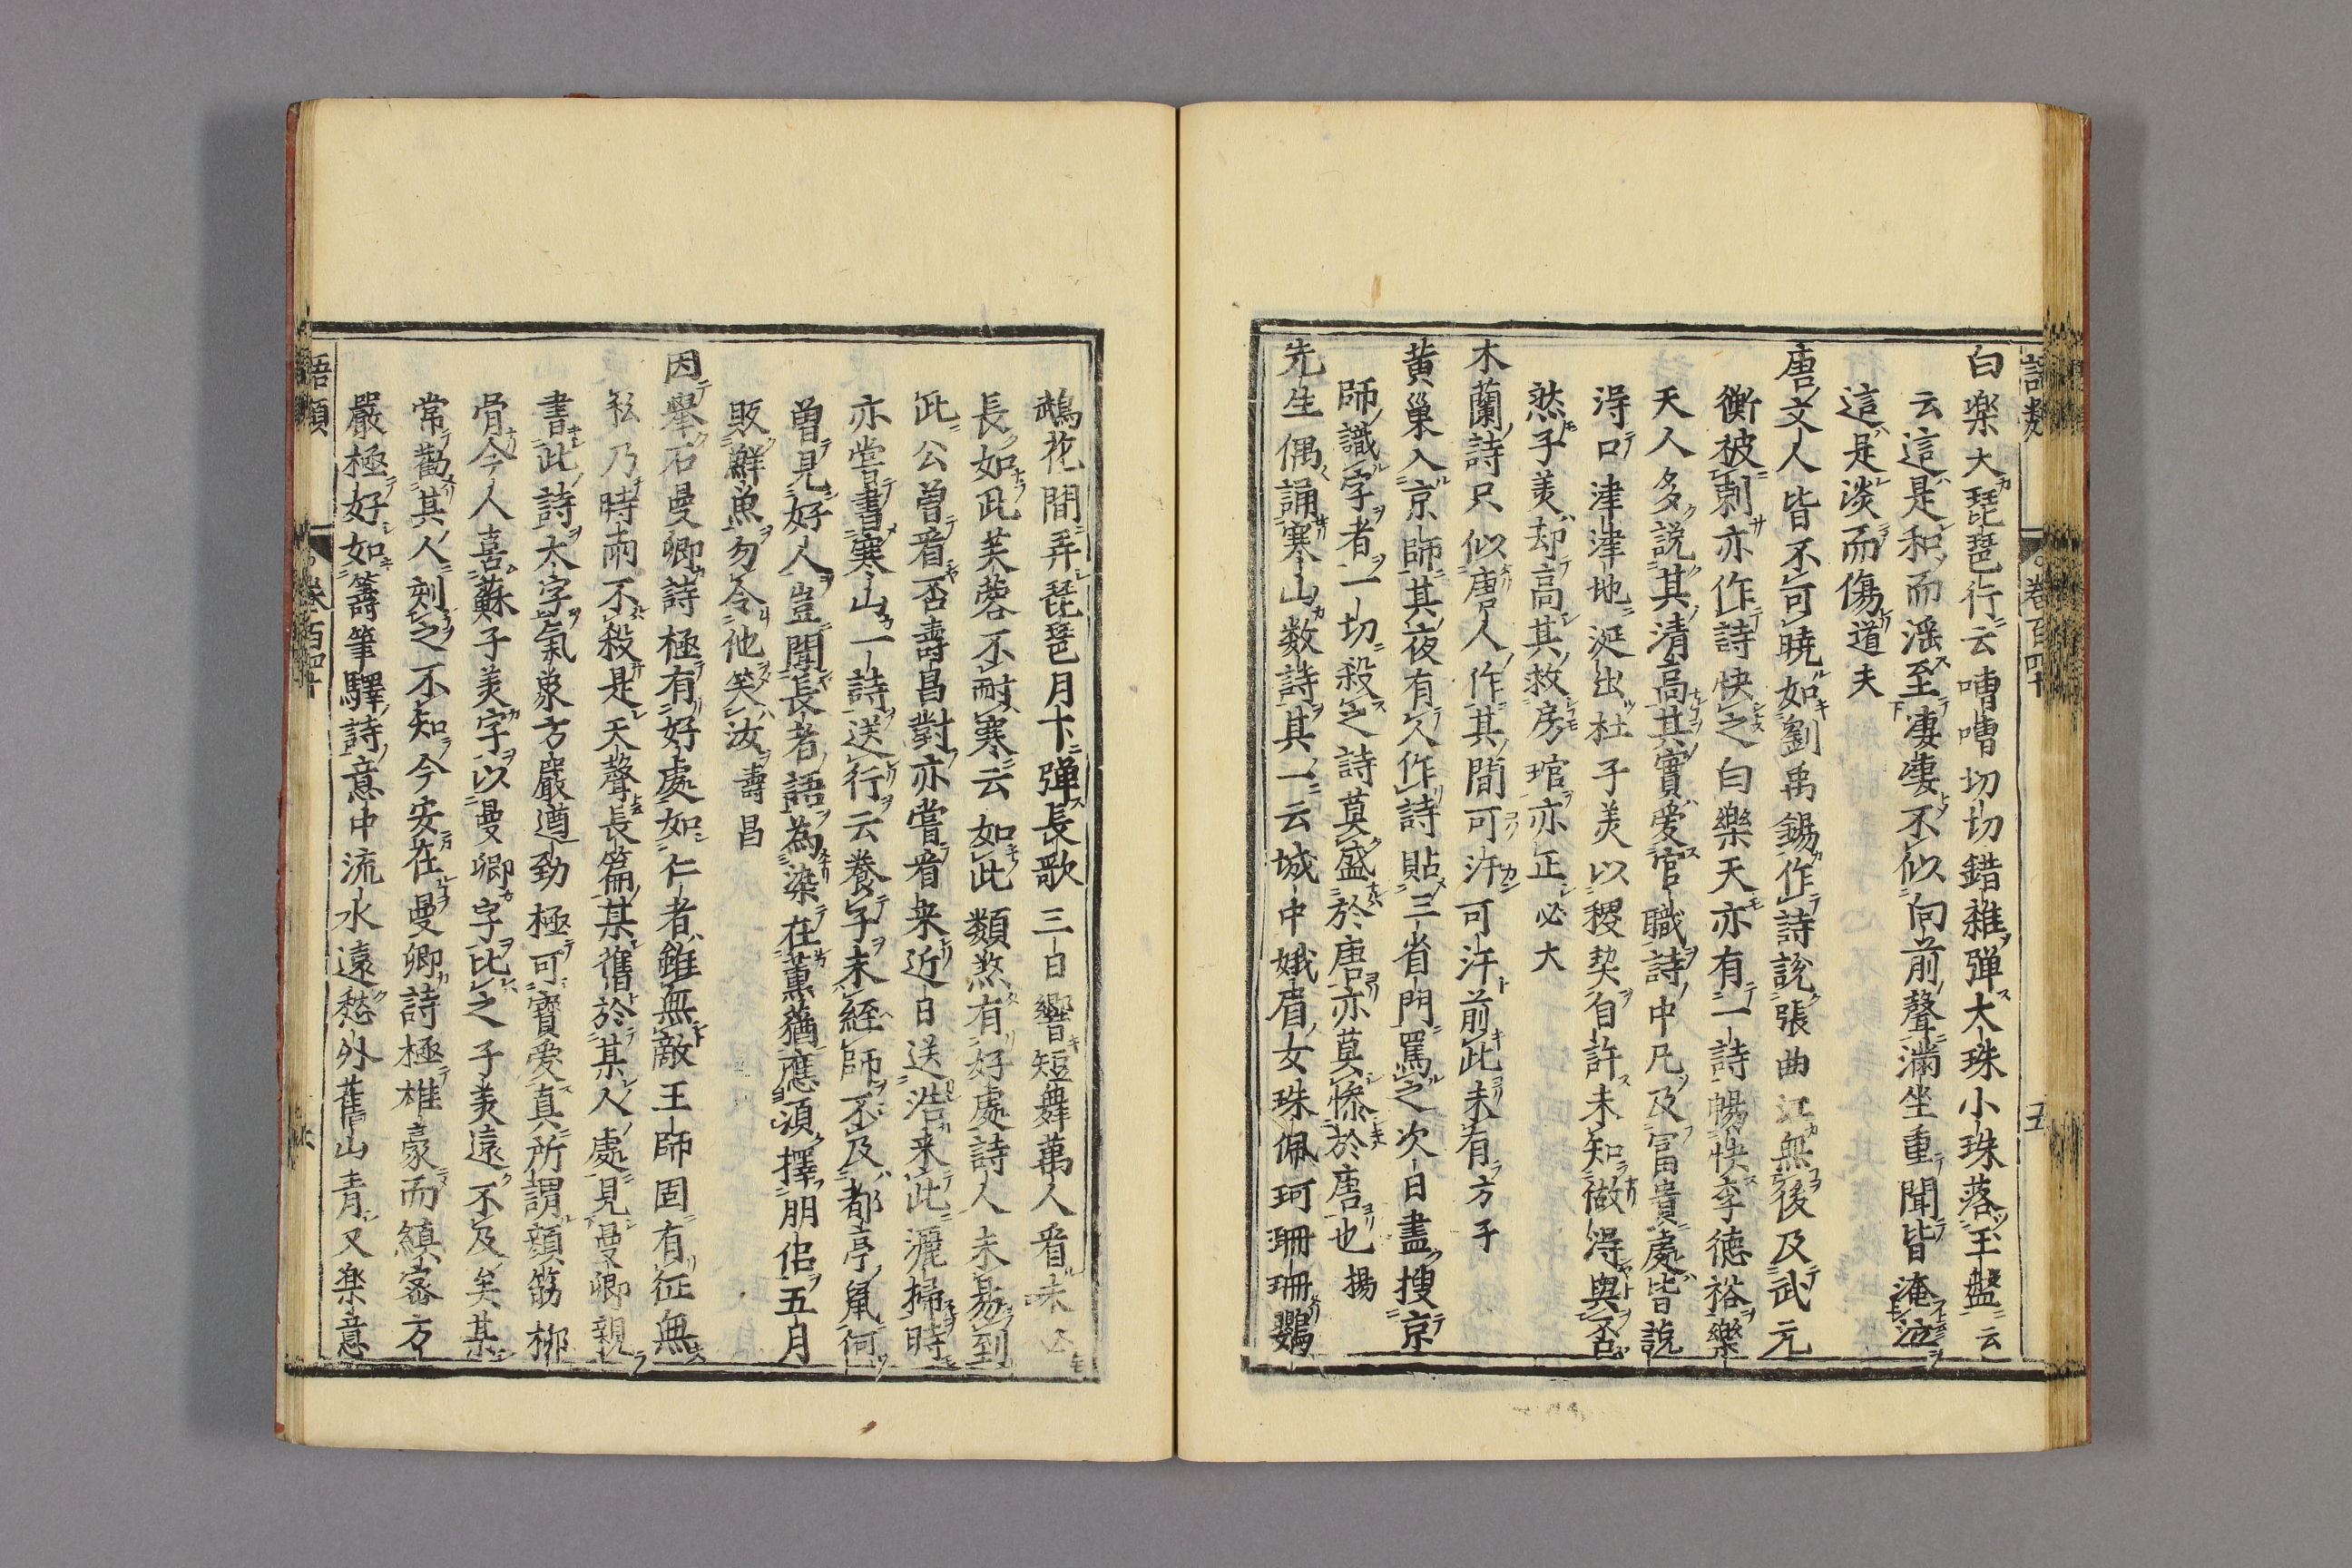 語類
卷百四十
五
白楽天琵琶行云嘈嘈切切錯雜弾大珠小珠落玉盤云
云這是和而滛至凄凄不似向前聲滿坐重聞皆淹泣
這是淡而傷道夫
唐文人皆不可曉如劉禹錫作詩說張曲江無後及武元
衡被刺亦作詩快之白樂天亦有一詩暢快李徳裕樂
天人多說其清高其實愛官職詩中凡及冨貴處皆說
淂口津津地涎出杜子羙以稷契自許未知做淂與否
然子羙却高其救房琯亦正必大
木蘭詩只似唐人作其間可汗可汗前此未有方子
黄巢入京師其夜有人作詩貼三省門罵之次日盡搜京
師識字者一切殺之詩莫盛於唐亦莫慘於唐也揚
先生偶誦寒山数詩其一云城中娥眉女珠佩珂珊珊鸚
鵡花間弄琵琶月下弾長歌三日響短舞萬人看未必
長如此芙蓉不耐寒云如此類煞有好處詩人未易到
此公曽看否壽昌對亦嘗看来近日送浩来此灑掃時
亦嘗書寒山一詩送行云養子未經師不及都亭鼠何
曽見好人豈聞長者語為染在薫蕕應湏擇朋侶五月
販鮮魚勿令他笑汝壽昌
因舉石曼卿詩極有好處如仁者雖無敵王師固有征無
私乃時雨不殺是天聲長篇某舊於某人處見曼卿親
書此詩大字氣象方嚴遒勁極可寶愛真所謂顔筋柳
骨今人喜蘇子美字以曼卿字比之子美遠不及矣某
常勸其人刻之不知今安在曼卿詩極雄豪而縝宻方
嚴極好如籌筆驛詩意中流水遠愁外舊山青又楽意
語類
卷百四十
六